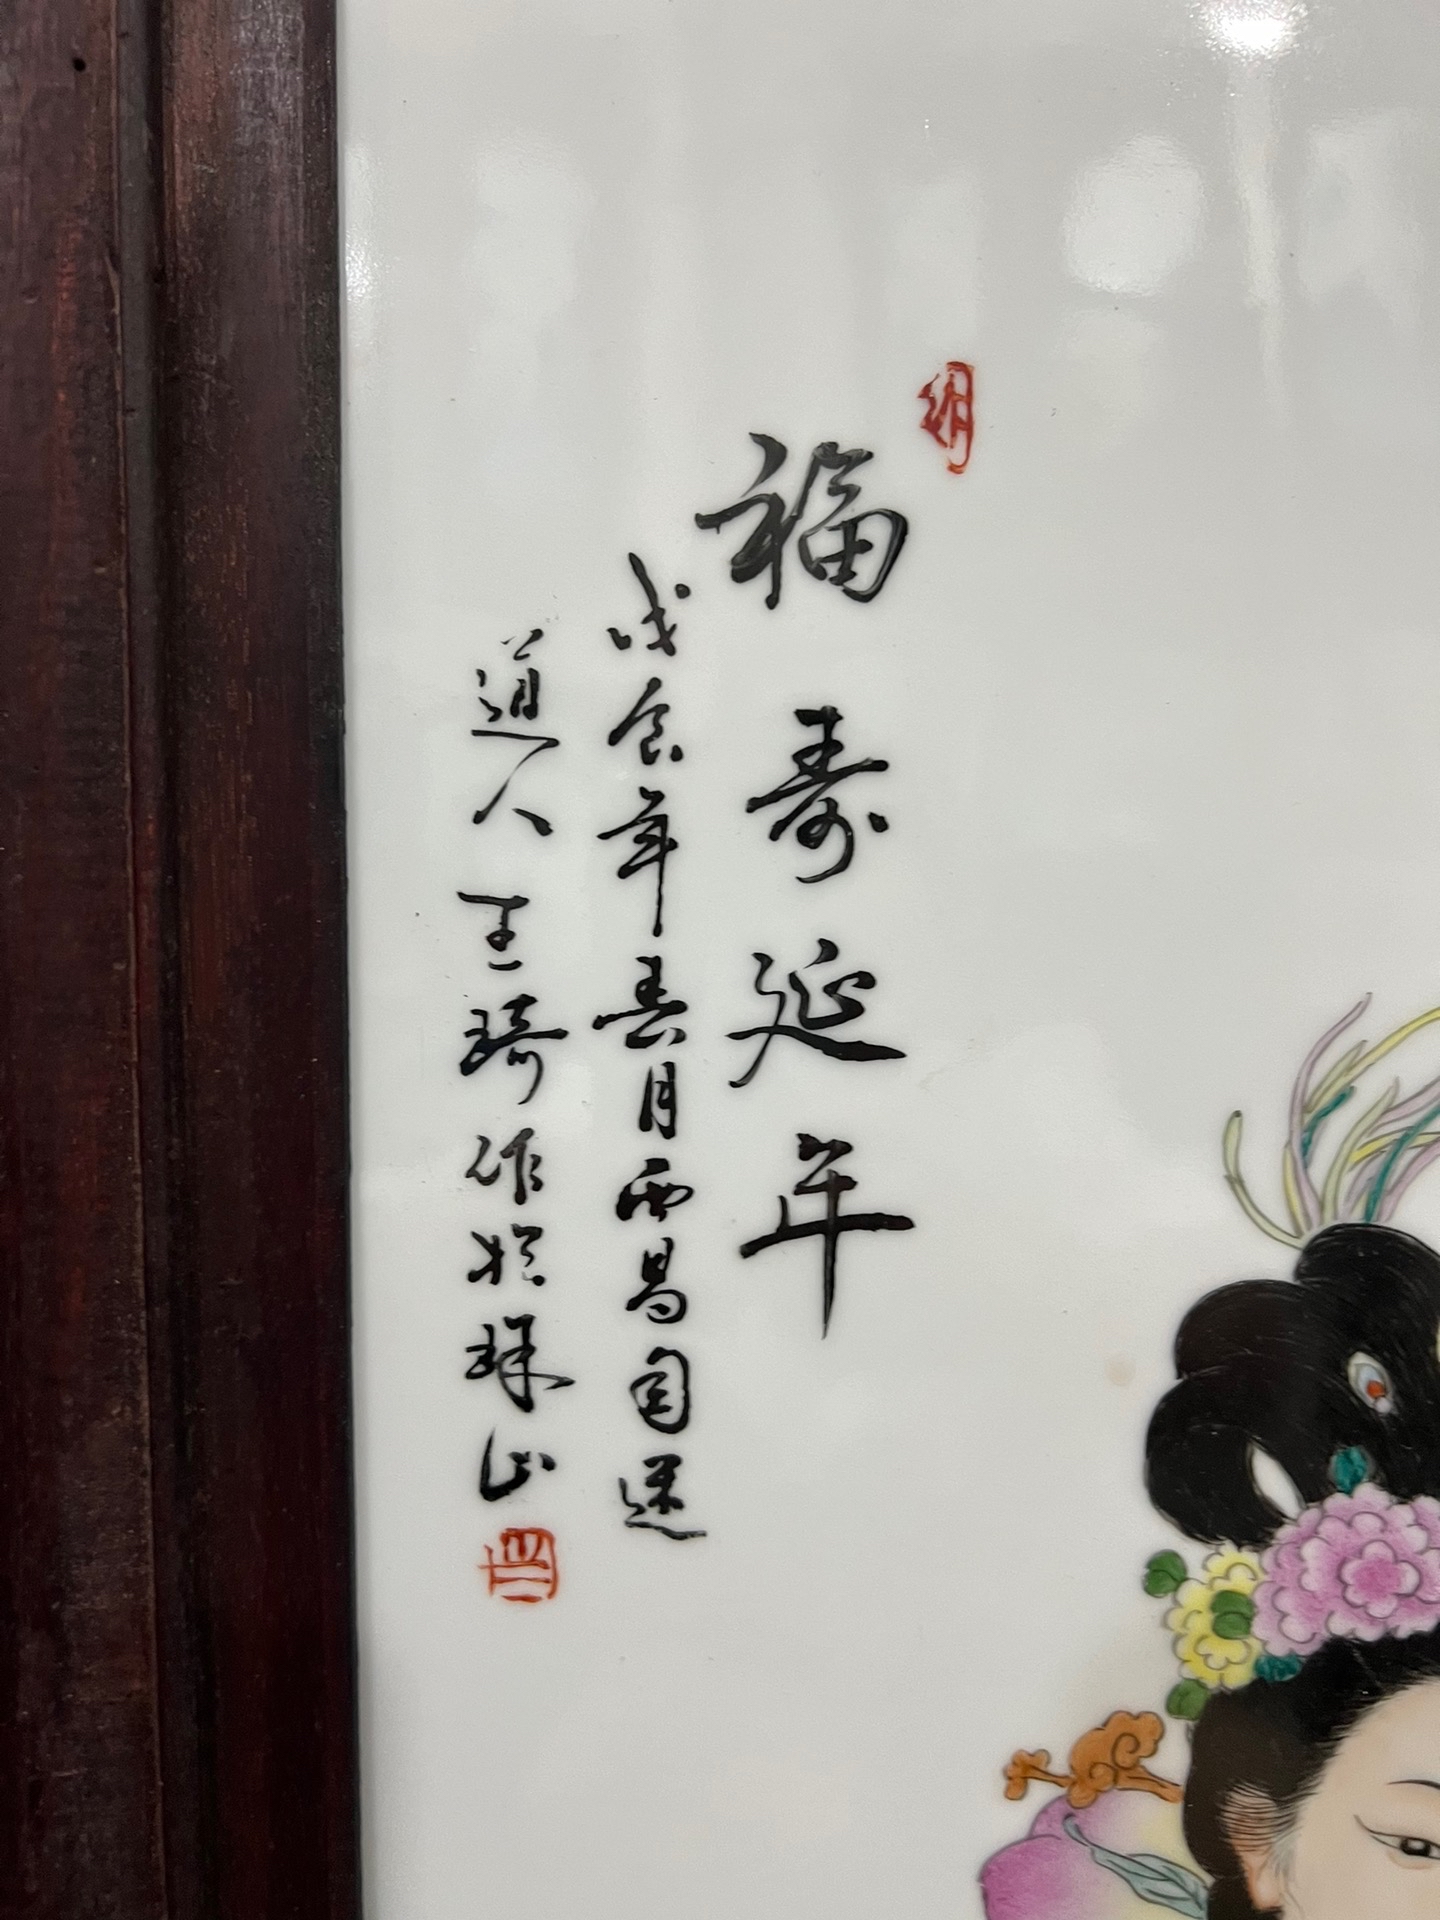 福寿延年
戊食年春月西昌匋迷
道人王琦作於珠山